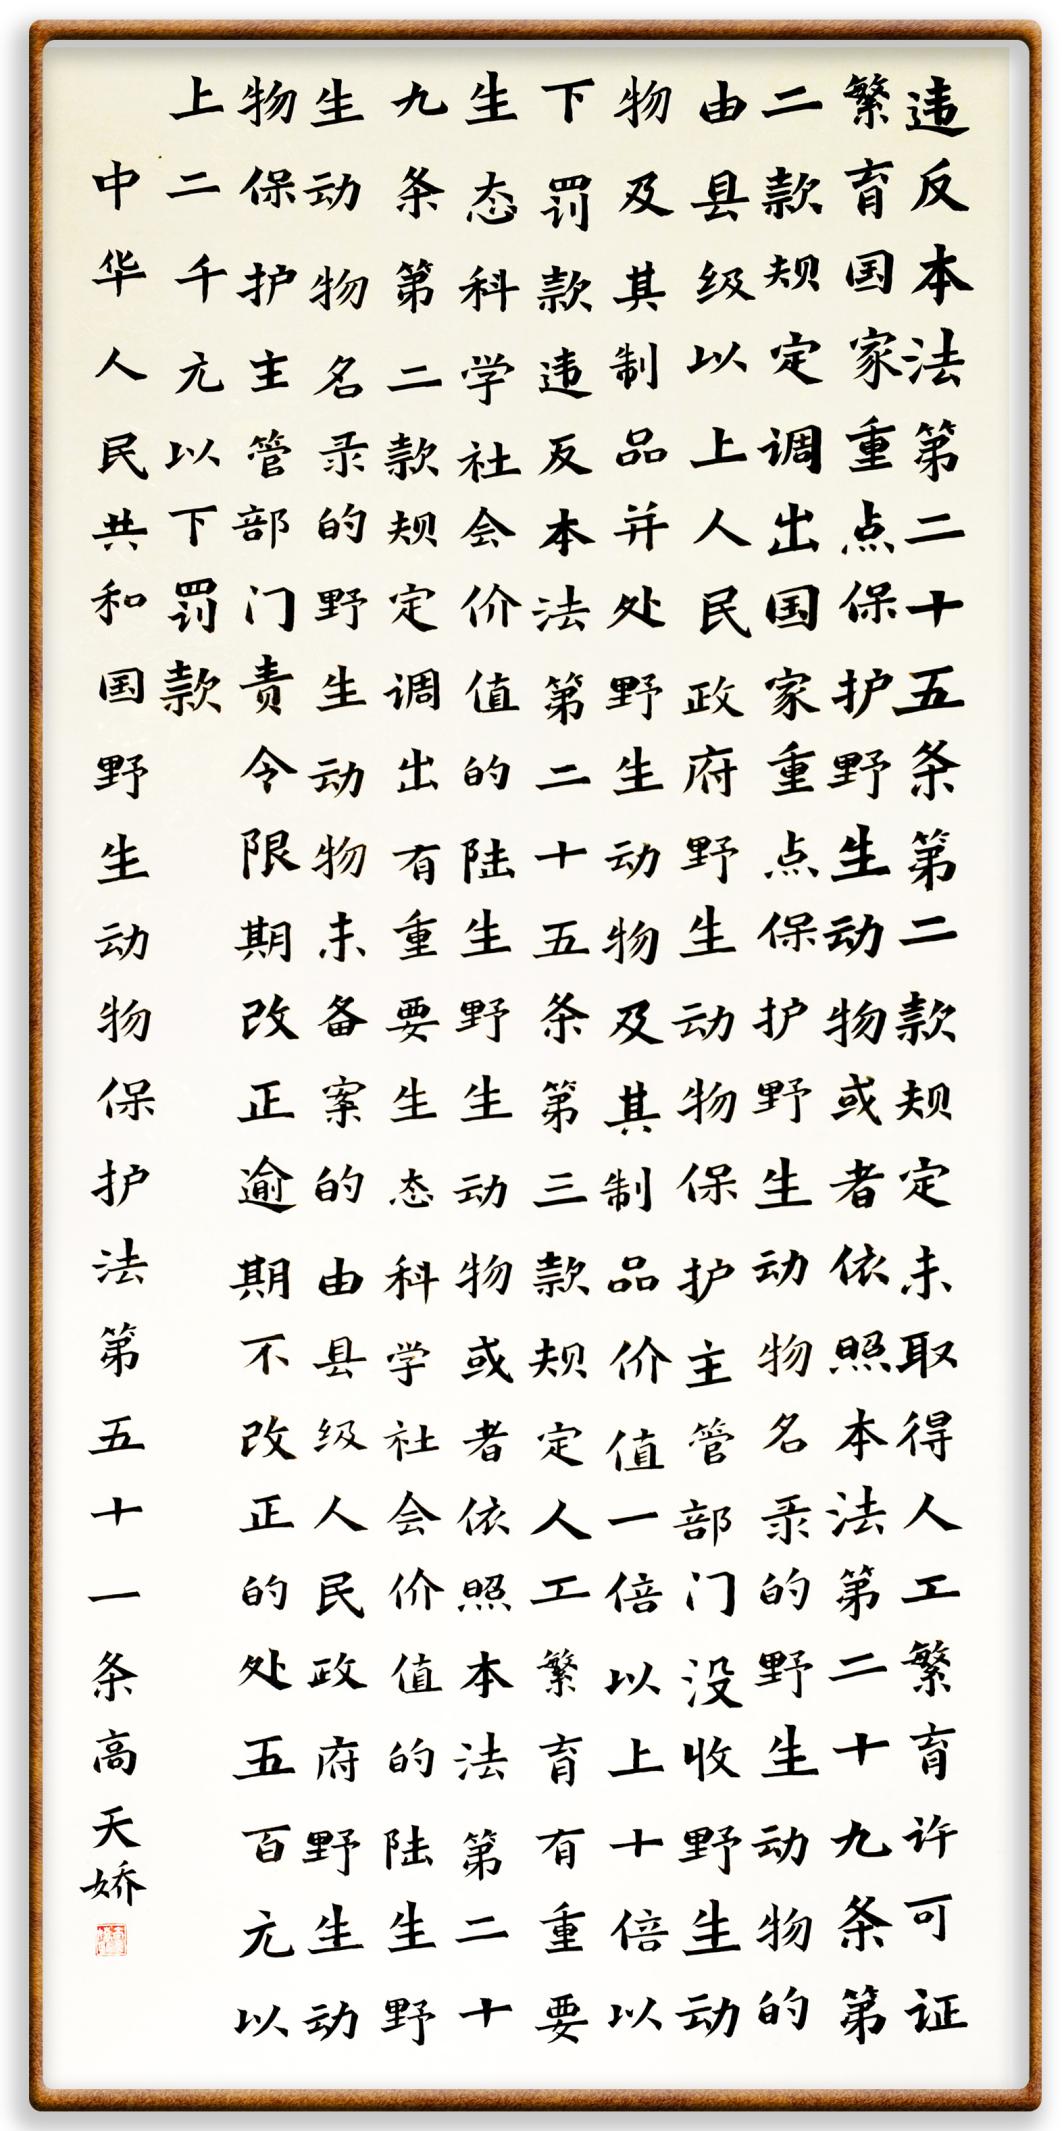 违反本法第二十五条第二款规定未取得人工繁育许可证
繁育国家重点保护野生动物或者依照本法第二十九条第
二款规定调出国家重点保护野生动物名录的野生动物的
由县级以上人民政府野生动物保护主管部门没收野生动
物及其制品并处野生动物及其制品价值一倍以上十倍以
下罚款违反本法第二十五条第三款规定人工繁育有重要
生态科学社会价值的陆生野生动物或者依照本法第二十
九条第二款规定调出有重要生态科学社会价值的陆生野
生动物名录的野生动物未备案的由县级人民政府野生动
物保护主管部门责令限期改正逾期不改正的处五百元以
上二千元以下罚款
中华人民共和国野生动物保护法第五十一条高天娇